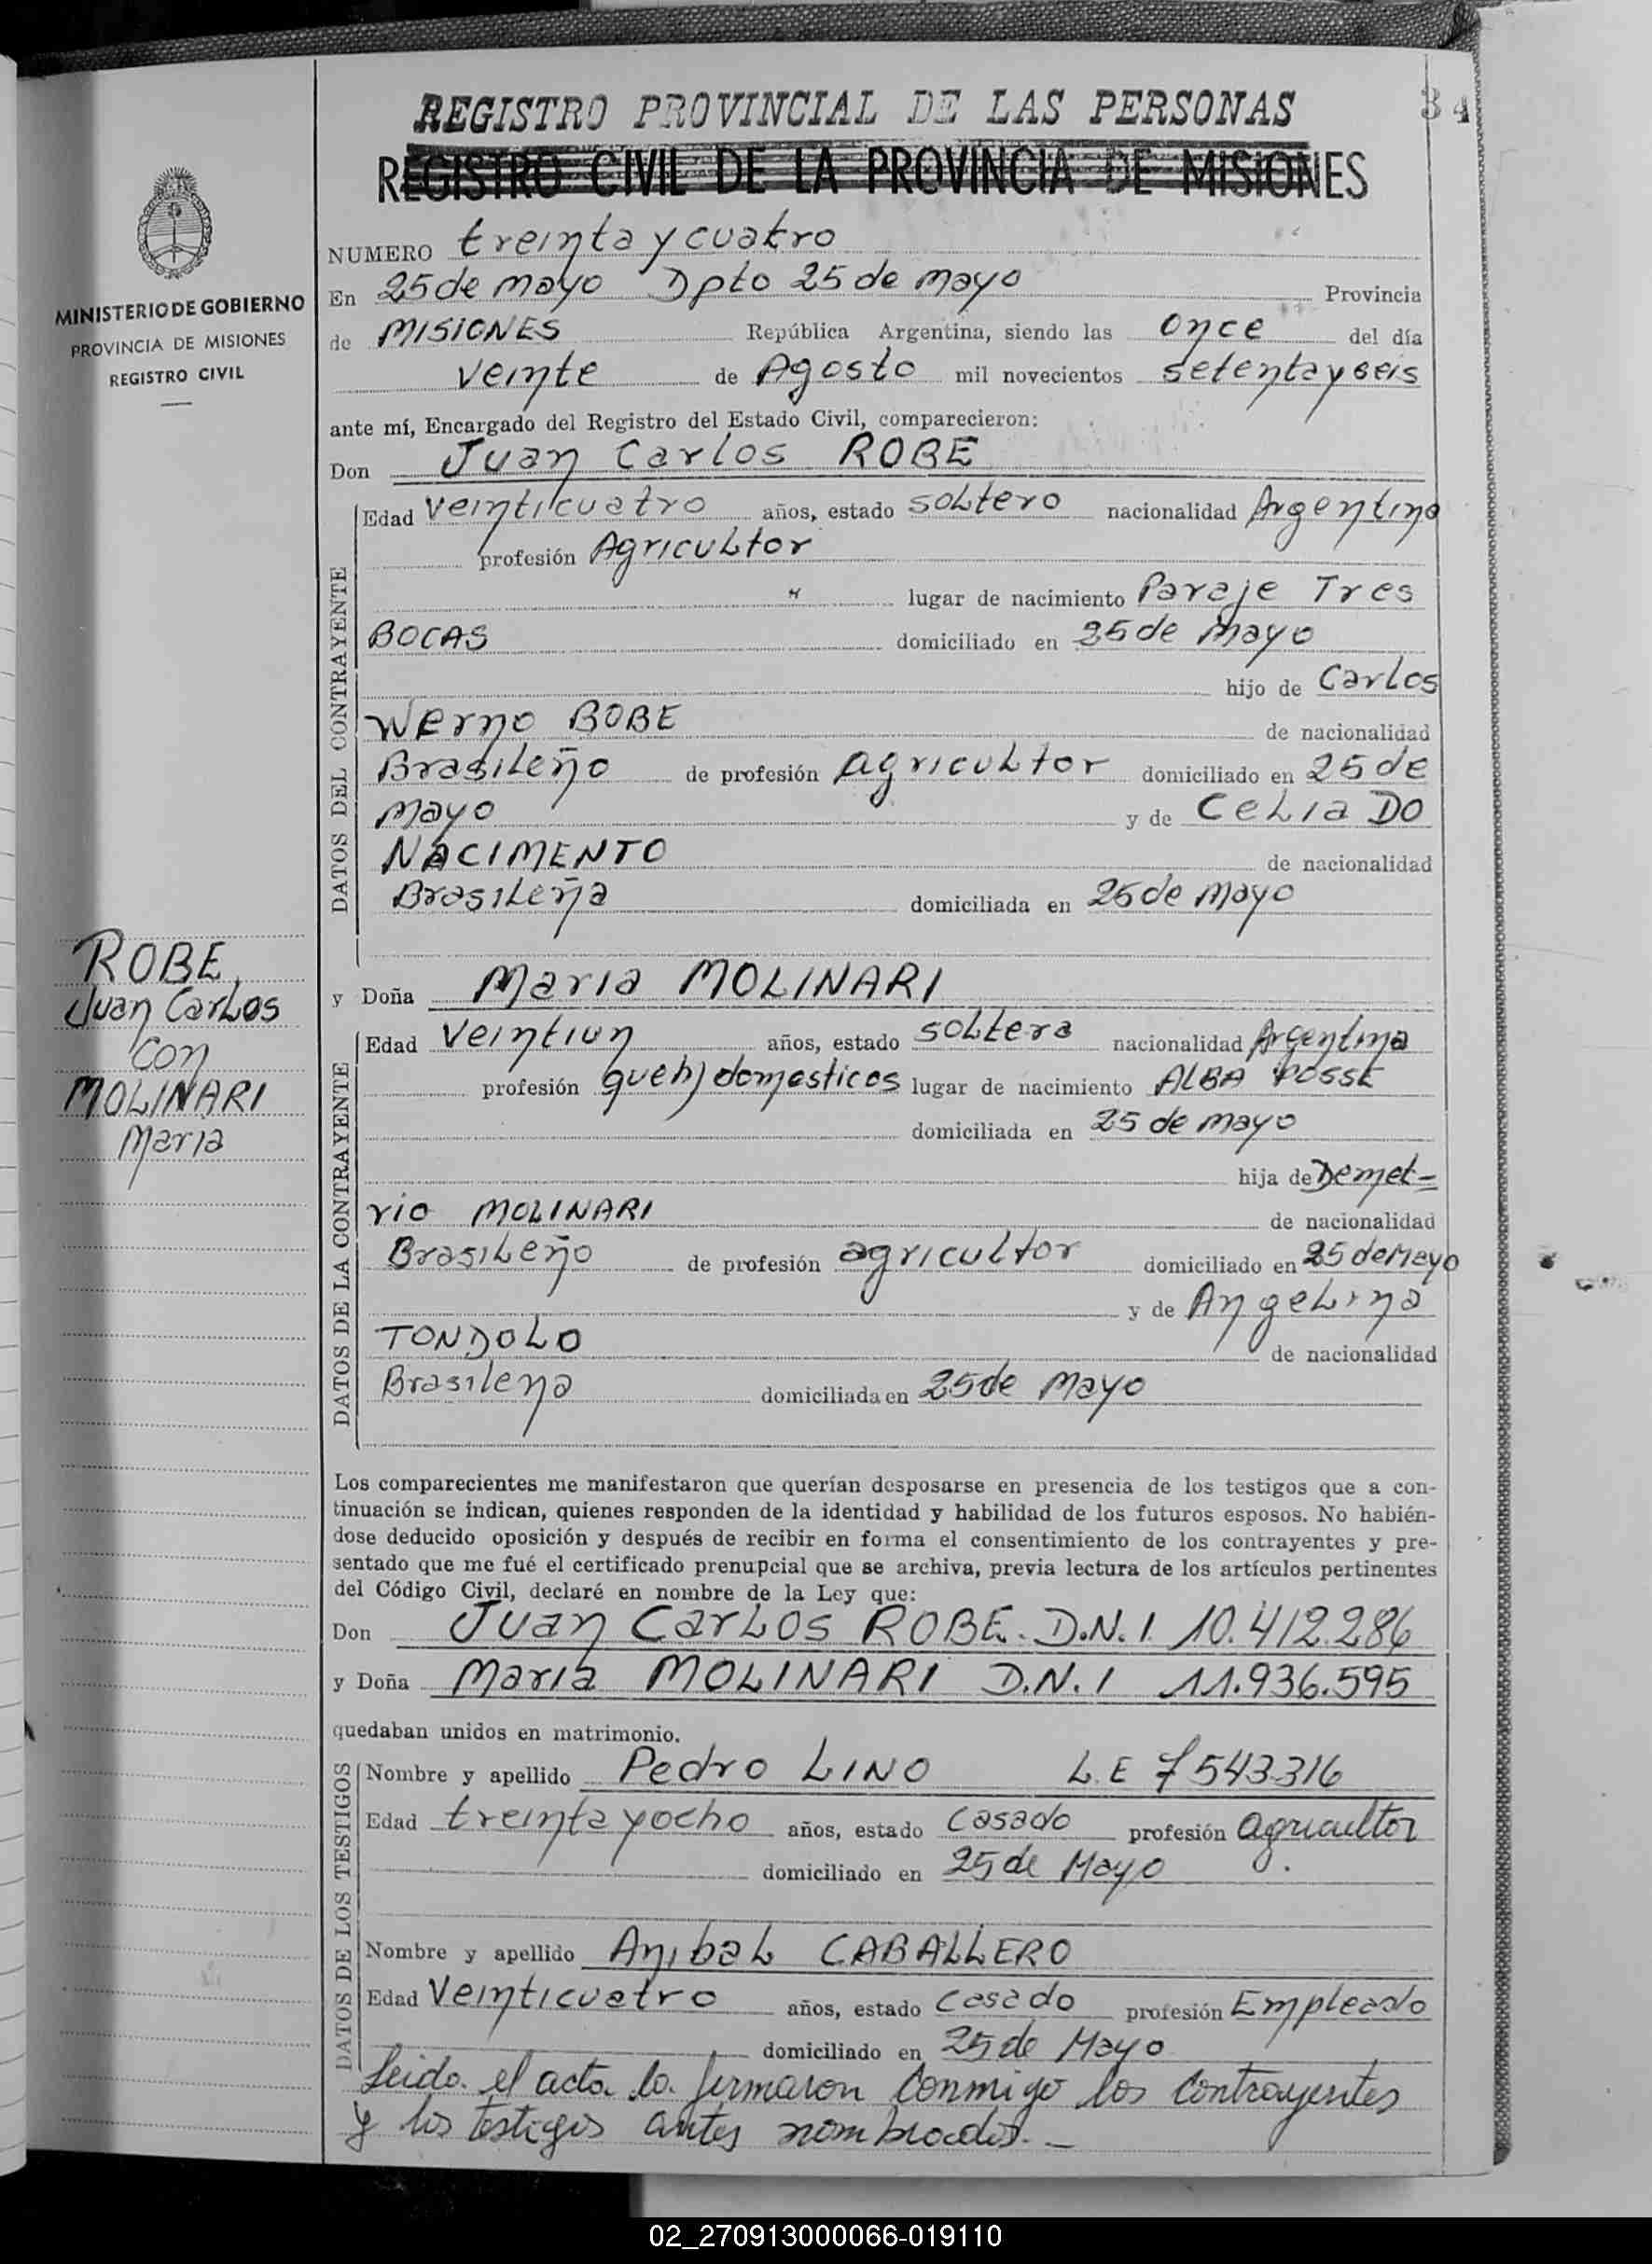 REGISTRO PROVINCIAL DE LAS PERSONAS
34
REGISTRO CIVIL DE LA PROVINCIA DE MISIONES
MINISTERIO DE GOBIERNO
PROVINCIA DE MISIONES
REGISTRO CIVIL
NUMERO treinta y cuatro
En 25 de mayo Dpto 25 de mayo Provincia
de MISIONES República Argentina, siendo las once del día
veinte de Agosto mil novecientos setenta y seis
ante mí, Encargado del Registro del Estado Civil, comparecieron:
Don Juan Carlos ROBE
DATOS DEL CONTRAYENTE
Edad veinticuatro años, estado soltero nacionalidad Argentino
profesión Agricultor
lugar de nacimiento Paraje Tres
BOCAS domiciliado en 25 de mayo
hijo de Carlos
Werno BOBE de nacionalidad
Brasileño de profesión agricultor domiciliado en 25 de
mayo y de Celia DO
NACIMENTO de nacionalidad
Brasileña domiciliada en 25 de mayo
ROBE
Juan Carlos
con
MOLINARI
Maria
y Doña Maria MOLINARI
DATOS DE LA CONTRAYENTE
Edad veintiun años, estado soltera nacionalidad Argentina
profesión queh) domesticos lugar de nacimiento ALBA POSSE
domiciliada en 25 de mayo
hija de Demet=
rio MOLINARI de nacionalidad
Brasileño de profesión agricultor domiciliado en 25 de Mayo
y de Angelina
TONDOLO de nacionalidad
Brasilena domiciliada en 25 de Mayo
Los comparecientes me manifestaron que querían desposarse en presencia de los testigos que a con-
tinuación se indican, quienes responden de la identidad y habilidad de los futuros esposos. No habién-
dose deducido oposición y después de recibir en forma el consentimiento de los contrayentes y pre-
sentado que me fué el certificado prenupcial que se archiva, previa lectura de los artículos pertinentes
del Código Civil, declaré en nombre de la Ley que:
Don Juan Carlos ROBE. D.N.I. 10.412.286
y Doña Maria MOLINARI D.N.I 11.936.595
quedaban unidos en matrimonio.
DATOS DE LOS TESTIGOS
Nombre y apellido Pedro LINO L.E 7543316
Edad treinta y ocho años, estado Casado profesión agricultor
domiciliado en 25 de Mayo
Nombre y apellido Anibal CABALLERO
Edad Veinticuatro años, estado casado profesión Empleado
domiciliado en 25 de Mayo
Leido el acta la firmaron conmigo los contrayentes
y los testigos antes nombrados.-
02_270913000066-019110